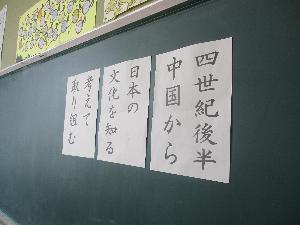 四世紀後半
中国から
日本の
文化を知る
考えて
取り組む